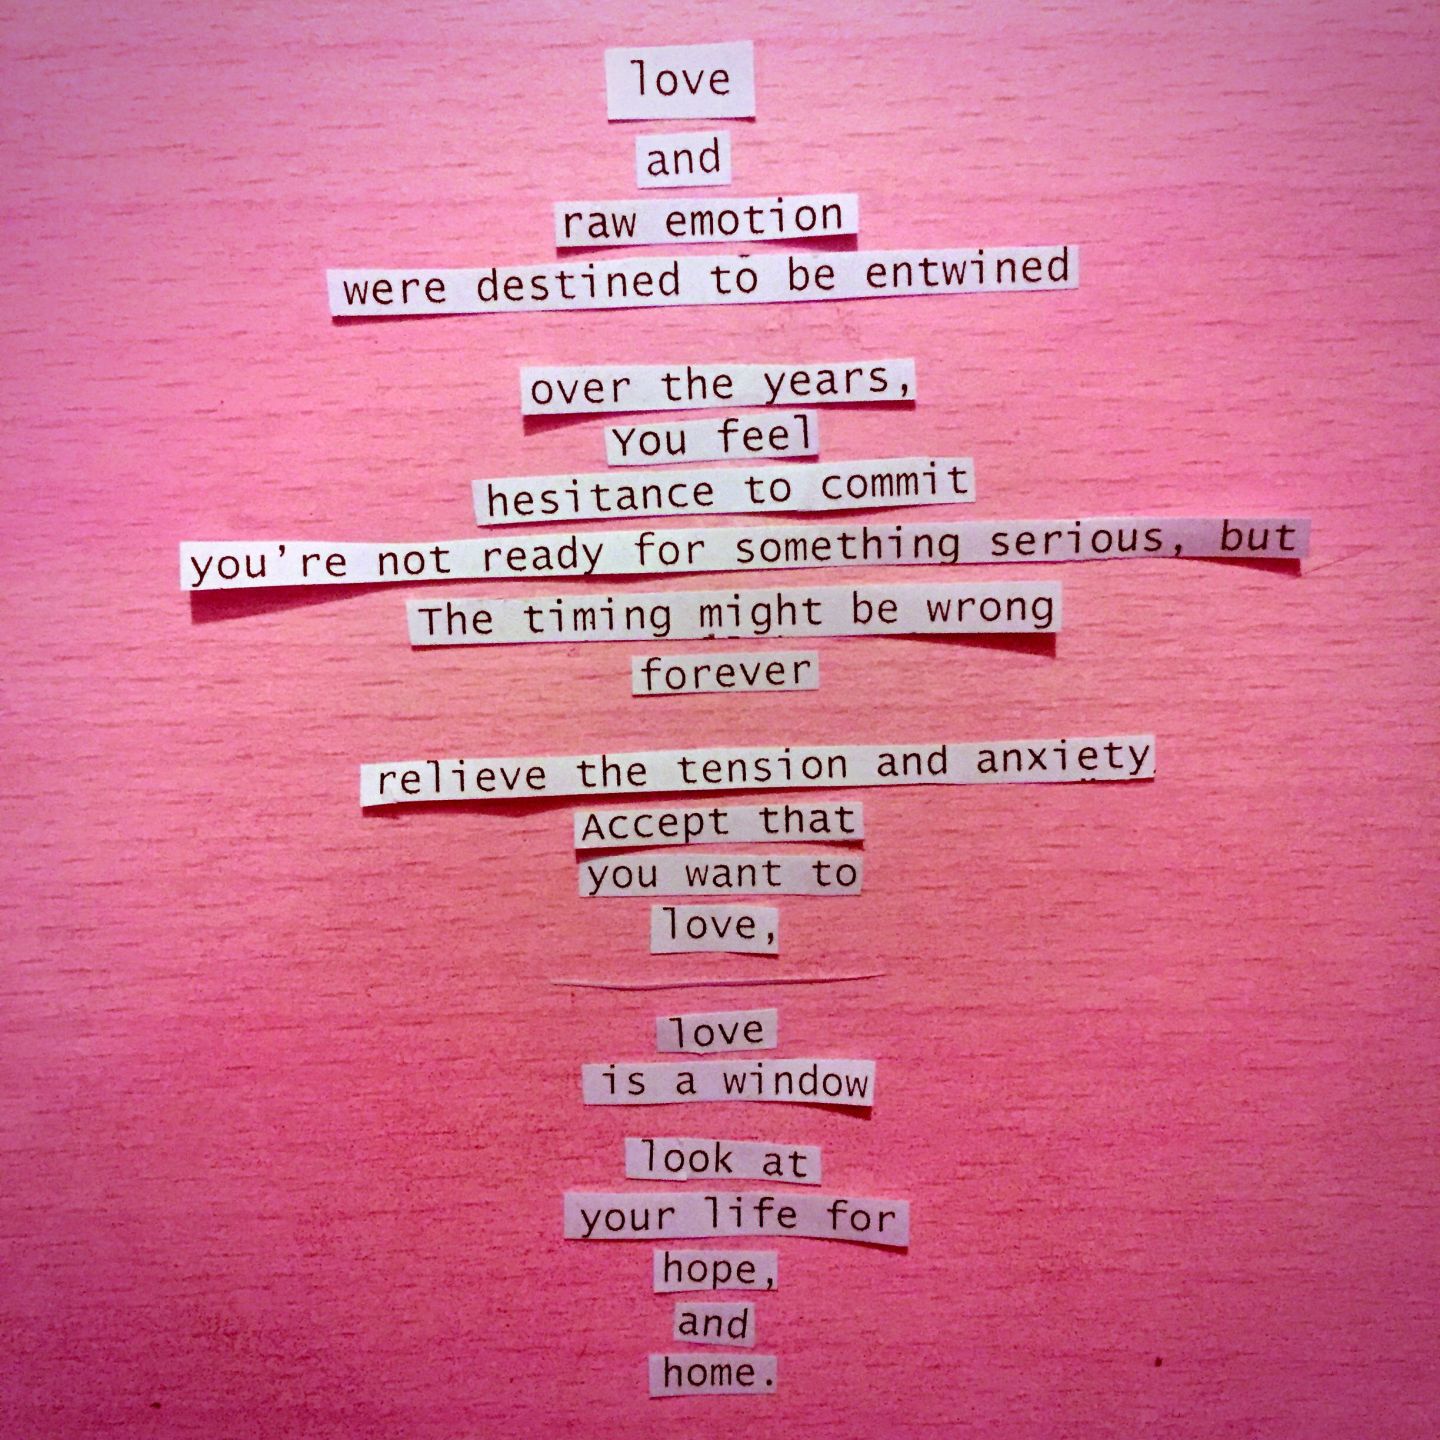 love
and
raw emotion
were destined to be entwined
over the years,
You feel
hesitance to commit
you're not ready for something serious, but
The timing might be wrong
forever
relieve the tension and anxiety
Accept that
you want to
love,
love
is a window
look at
your life for
hope,
and
home.